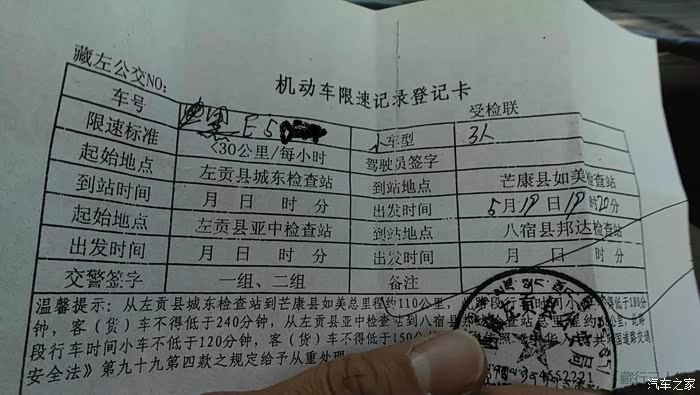 藏左公交NO:
机动车限速记录登记卡
受检联
车号 E5 车型 3人
限速标准 <30公里/每小时 驾驶员签字
起始地点 左贡县城东检查站 到站地点 芒康县如美检查站
到站时间 月 日 时 分 出发时间 5月19日19时20分
起始地点 左贡县亚中检查站 到站地点 八宿县邦达检查站
出发时间 月 日 时 分 出发时间 月 日 时 分
交警签字 一组、二组 备注
温馨提示：从左贡县城东检查站到芒康县如美总里程约110公里，此路段行车时间小车不得低于180分
钟，客（货）车不得低于240分钟，从左贡县亚中检查站到八宿县邦达检查站总里程约
段行车时间小车不低于120分钟，客（货）车不得低于150分 国道路交通
安全法》第九十九第四款之规定给予从重处理
4552221
藏行二人
汽车之家